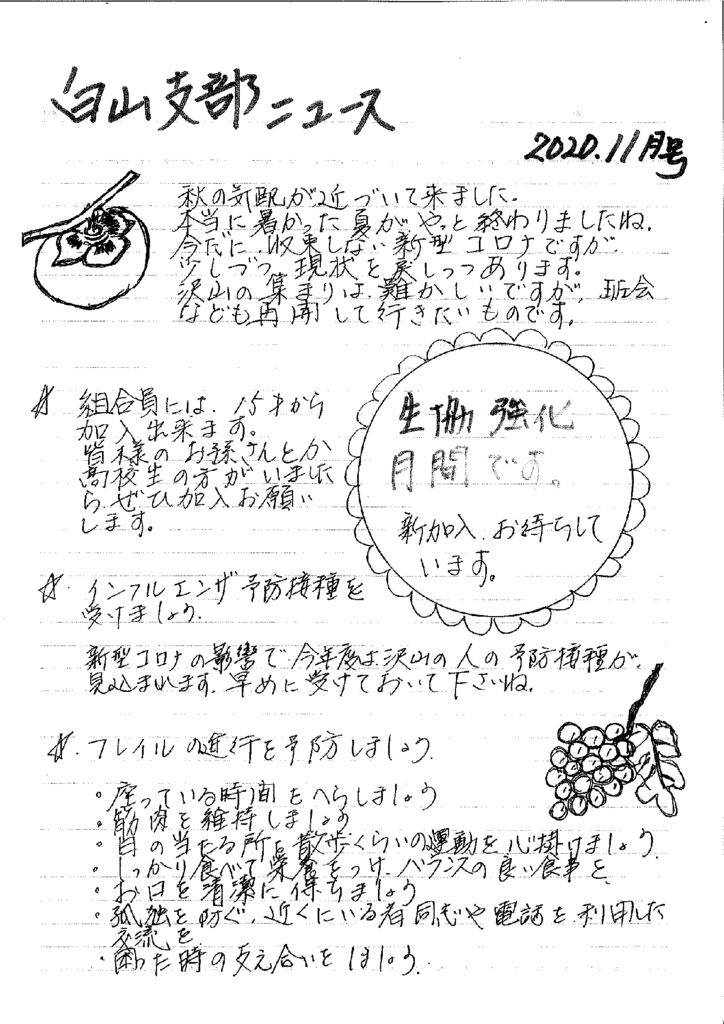 白山支部ニュース
2020.11月号
秋の気配が近づいて来ました。
本当に暑かった夏がやっと終わりましたね。
今だに、収束しない新型コロナですが
少しづつ現状を戻しつつあります。
沢山の集まりは、難かしいですが、班会
なども再開して行きたいものです。
☆ 組合員には、15才から
加入出来ます。
皆様のお孫さんとか
高校生の方がいました
らぜひ加入お願い
します。
生協強化
月間です。
新加入、お待ちして
います。
☆ インフルエンザ予防接種を
受けましょう。
新型コロナの影響で、今年度は、沢山の人の予防接種が、
見込まれます。早めに受けておいて下さいね。
☆ フレイルの進行を予防しましょう。
・座っている時間をへらしましょう
・筋肉を維持しましょう
・日の当たる所を散歩くらいの運動を心掛けましょう。
・しっかり食べて栄養をつけ、バランスの良い食事を、
・お口を清潔に保ちましょう
・孤独を防ぐ、近くにいる者同志や電話を利用した
交流を、
・困った時の支え合いをしましょう。